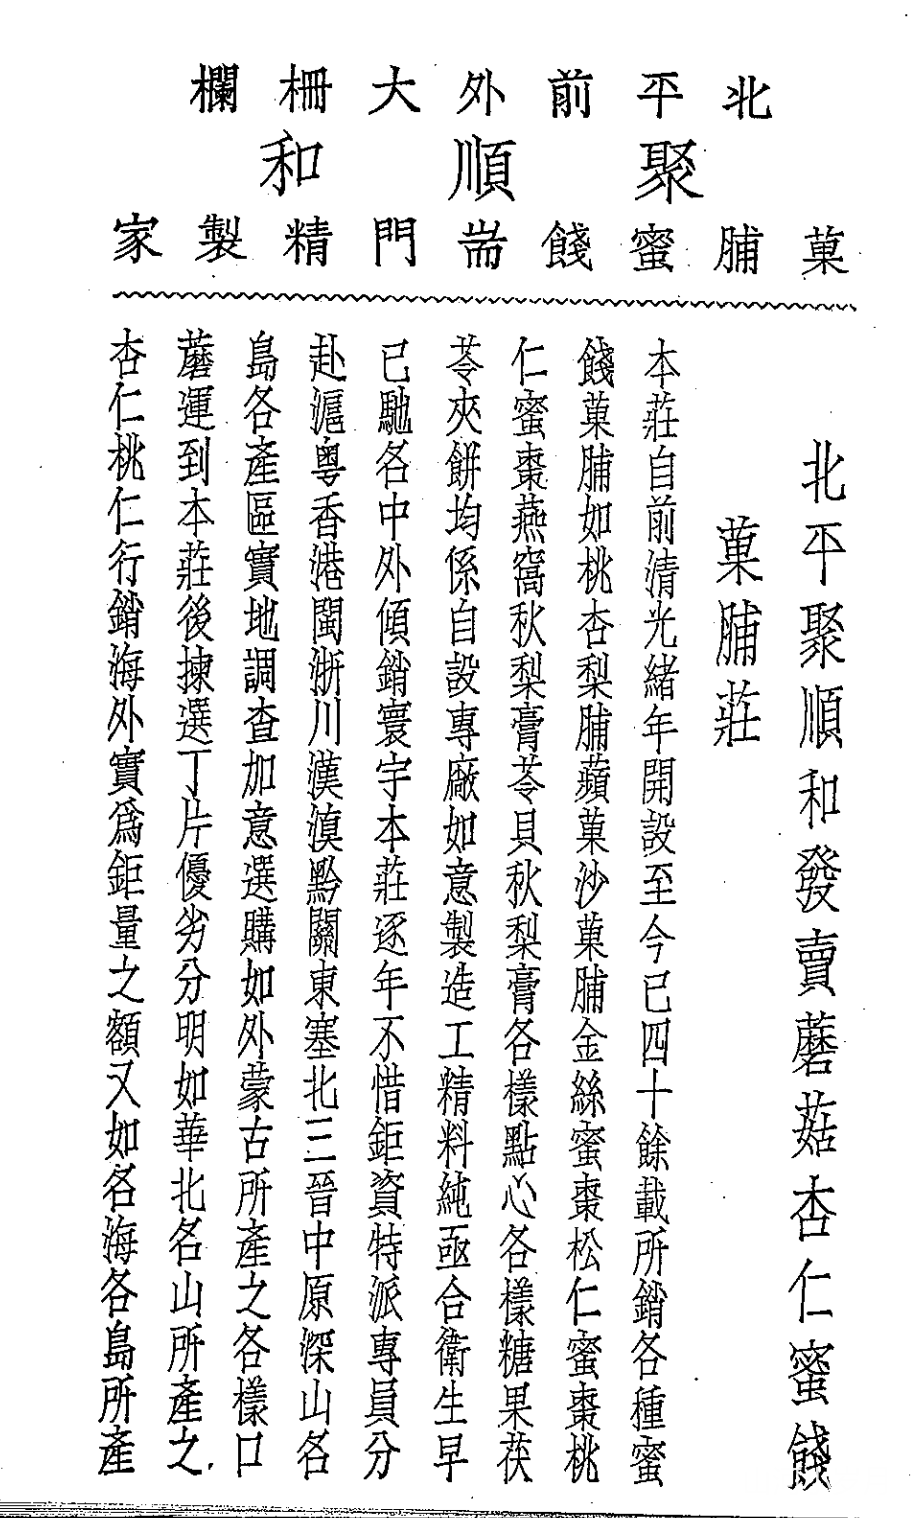 北平前外大柵欄
聚順和
菓脯蜜餞耑門精製家
北平聚順和發賣蘑菇杏仁蜜餞
菓脯莊
本莊自前清光緒年開設至今已四十餘載所銷各種蜜
餞菓脯如桃杏梨脯蘋菓沙菓脯金絲蜜棗松仁蜜棗桃
仁蜜棗燕窩秋梨膏苓貝秋梨膏各樣點心各樣糖果茯
苓夾餅均係自設專廠如意製造工精料純亟合衛生早
已馳名中外傾銷寰宇本莊逐年不惜鉅資特派專員分
赴滬粵香港閩浙川漢滇黔關東塞北三晉中原深山名
島各產區實地調查加意選購如外蒙古所產之各樣口
蘑運到本莊後揀選丁片優劣分明如華北名山所產之
杏仁桃仁行銷海外實為鉅量之額又如名海各島所產